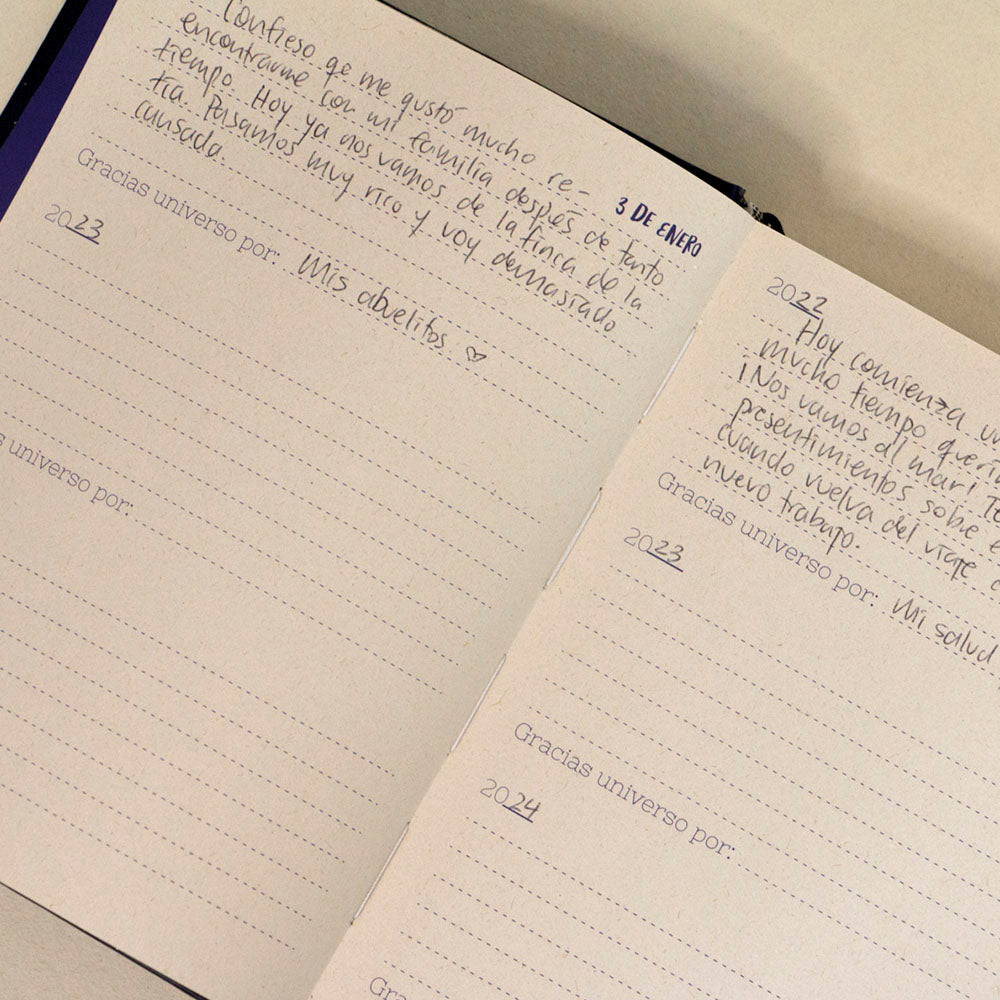 Confieso qe me gustó mucho re-
encontrarme con mi familia despés de tanto
tiempo. Hoy ya nos vamos de la finca de la
tía. Pasamos muy rico y voy demasiado
cansada.
Gracias universo por: Mis abuelitos ♡
2023
universo por:
3 DE ENERO
2022
Hoy comienza un
mucho tiempo querí
¡Nos vamos al mar! Te
presentimientos sobre e
cuando vuelva del viaje
nuevo trabajo.
Gracias universo por: Mi salud
2023
Gracias universo por:
2024
Gra